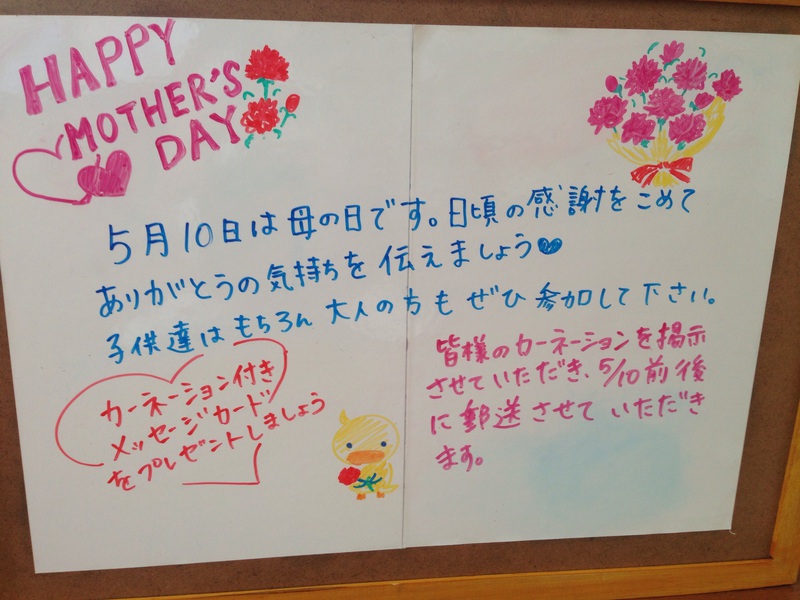 HAPPY
MOTHER'S
DAY
5月10日は母の日です。日頃の感謝をこめて
ありがとうの気持ちを伝えましょう♥
子供達はもちろん大人の方もぜひ参加して下さい。
カーネーション付き
メッセージカード
をプレゼントしましょう
皆様のカーネーションを掲示
させていただき、5/10前後
に郵送させていただき
ます。